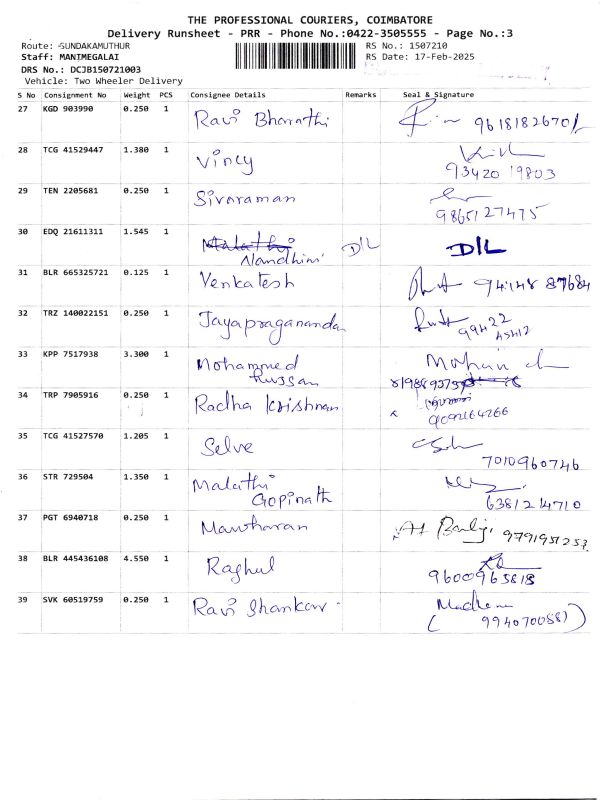 THE PROFESSIONAL COURIERS, COIMBATORE
Delivery Runsheet - PRR - Phone No.:0422-3505555 - Page No.:3
Route: SUNDAKAMUTHUR RS No.: 1507210
Staff: MANIMEGALAI RS Date: 17-Feb-2025
DRS No.: DCJB150721003
Vehicle: Two Wheeler Delivery
S No Consignment No Weight PCS Consignee Details Remarks Seal & Signature
27 KGD 903990 0.250 1 Ravi Bharathi
28 TCG 41529447 1.380 1 Vincy
93420 19803
29 TEN 2205681 0.250 1 Sivaraman
9865127475
30 EDQ 21611311 1.545 1 Malathi D/L D/L
Nandhini
31 BLR 665325721 0.125 1 Venkatesh
32 TRZ 140022151 0.250 1 Jayapraganandan
99422
45412
33 KPP 7517938 3.300 1 Mohammed Mohan
Hussan
34 TRP 7905916 0.250 1 Radha Krishnan
9092164266
35 TCG 41527570 1.205 1 Selve
7010960746
36 STR 729504 1.350 1 Malathi
Gopinath 6381214710
37 PGT 6940718 0.250 1 Manoharan 9791951253
38 BLR 445436108 4.550 1 Raghul
9600965618
39 SVK 60519759 0.250 1 Ravi Shankar